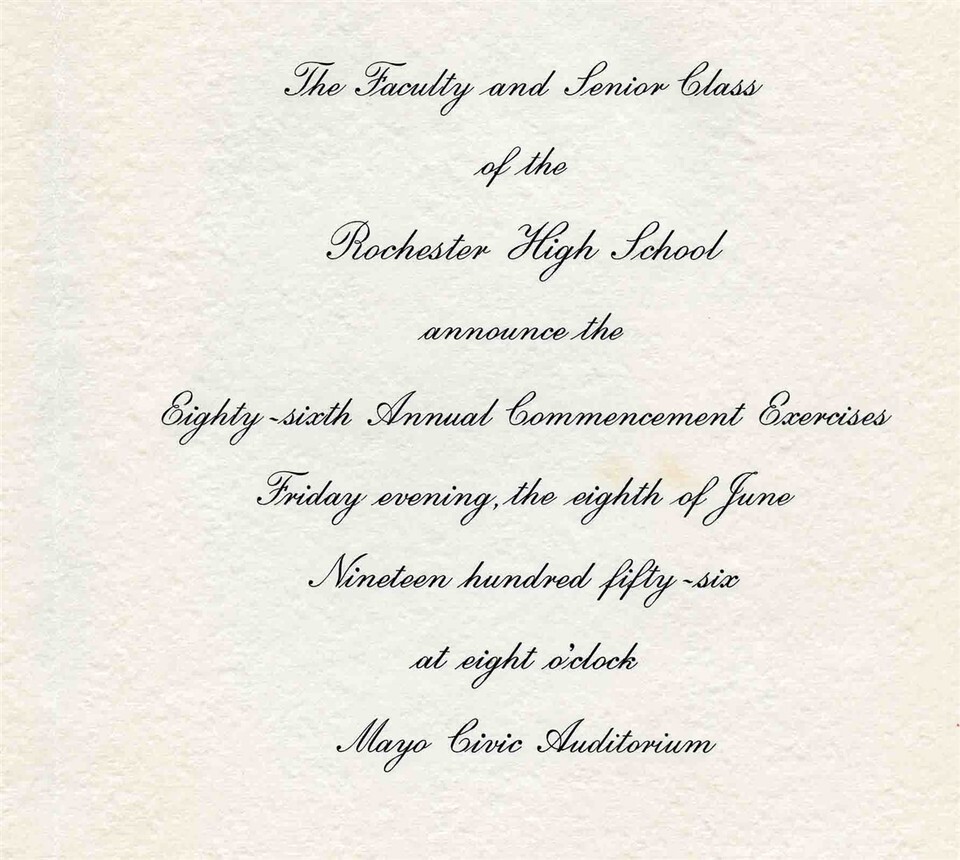 The Faculty and Senior Class
of the
Rochester High School
announce the
Eighty-sixth Annual Commencement Exercises
Friday evening, the eighth of June
Nineteen hundred fifty-six
at eight o'clock
Mayo Civic Auditorium